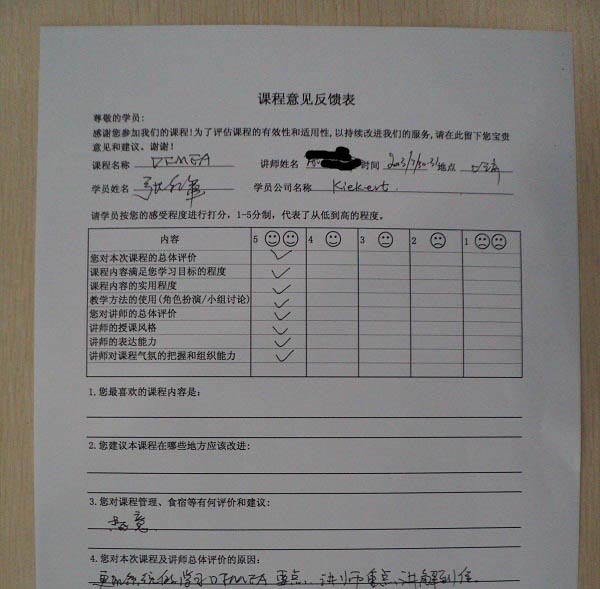 课程意见反馈表
尊敬的学员:
感谢您参加我们的课程!为了评估课程的有效性和适用性,以持续改进我们的服务,请在此留下您宝贵
意见和建议。谢谢!
课程名称 DFMEA 讲师姓名 时间 地点
学员姓名 学员公司名称 Kiekert.
请学员按您的感受程度进行打分, 1-5分制, 代表了从低到高的程度。
内容 5 4 3 2 1
您对本次课程的总体评价
课程内容满足您学习目标的程度
课程内容的实用程度
教学方法的使用(角色扮演/小组讨论)
您对讲师的总体评价
讲师的授课风格
讲师的表达能力
讲师对课程气氛的把握和组织能力
1.您最喜欢的课程内容是:
2.您建议本课程在哪些地方应该改进:
3.您对课程管理、食宿等有何评价和建议:
4.您对本次课程及讲师总体评价的原因:
学习DFMEA 重点, 讲师重点讲解到位